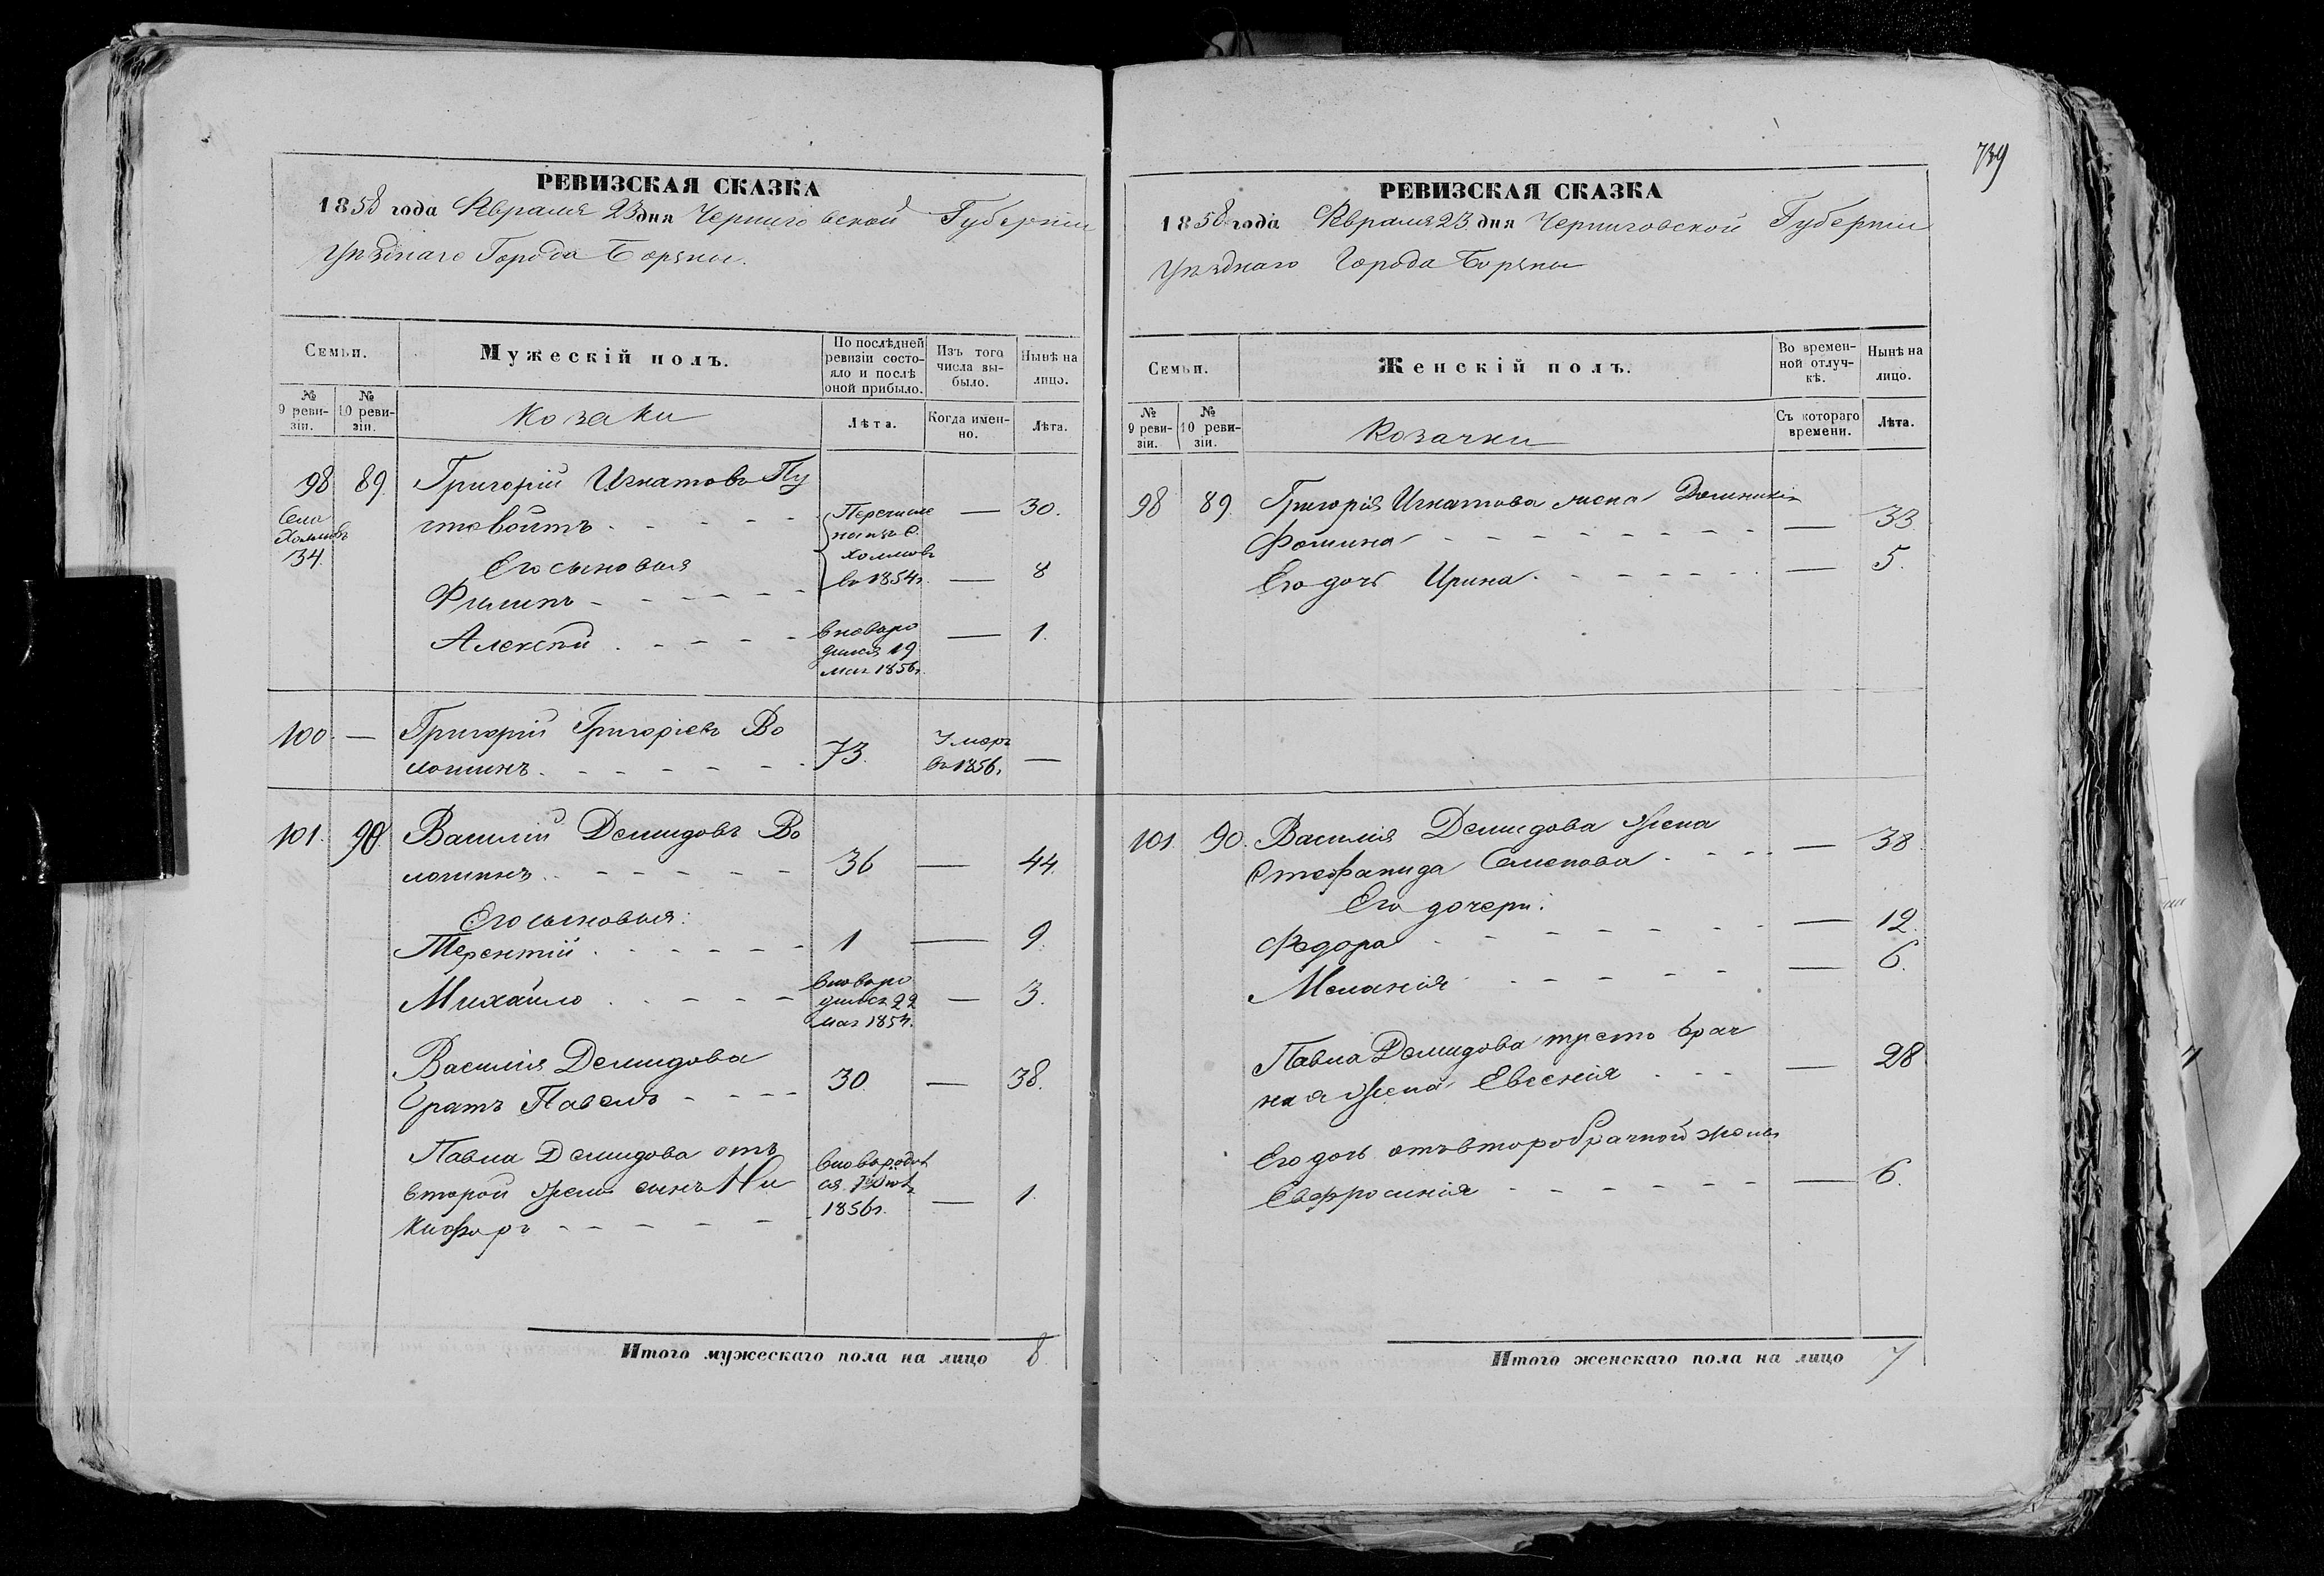 739
РЕВИЗСКАЯ СКАЗКА
1858 года Февраля 23 дня Черниговской Губерніи
Уѣзднаго Города Борзны.
Семьи.
Мужескій полъ.
По послѣдней ревизіи состояло и послѣ оной прибыло.
Изъ того числа выбыло.
Нынѣ на лицо.
№ 9 ревизіи.
№ 10 ревизіи.
Козаки
Лѣта.
Когда именно.
Лѣта.
98 89 Григорій Игнатовъ Пу
стовойтъ — 30.
Села
Холмовъ
34.
Перечисле
Холмовъ
въ 1854г.
Его сыновья
Филипъ — 8
Алексѣй — 1.
вноворо
дился 19
мая 1856г.
100 — Григорій Григоріевъ Во
лошинъ 73. —
Умеръ
въ 1856г.
101. 90. Василій Демидовъ Во
лошинъ 36 — 44.
Его сыновья:
Терентій 1 — 9.
Михайло — 3.
вноворо
дился 22
мая 1854г.
Василія Демидова
братъ Павелъ 30. — 38.
Павла Демидова отъ
второй жены сынъ Ни
кифоръ — 1.
1856г.
Итого мужескаго пола на лицо 8
РЕВИЗСКАЯ СКАЗКА
1858 года Февраля 23 дня Черниговской Губерніи
Уѣзднаго Города Борзны
Семьи.
Женскій полъ.
Во временной отлучкѣ.
Нынѣ на лицо.
№ 9 ревизіи.
№ 10 ревизіи.
Козачки
Съ котораго времени.
Лѣта.
98 89. Григорія Игнатова жена Домникія
Фомина — 33.
Его дочь Ирина — 5.
101 90. Василія Демидова жена
Стефанида Семенова — 38.
Его дочери:
Федора — 12.
Меланія — 6.
Павла Демидова третьебрач
ная жена Евгенія — 28
Его дочь отъ второбрачной жены
Евфросинія — 6.
Итого женскаго пола на лицо 7